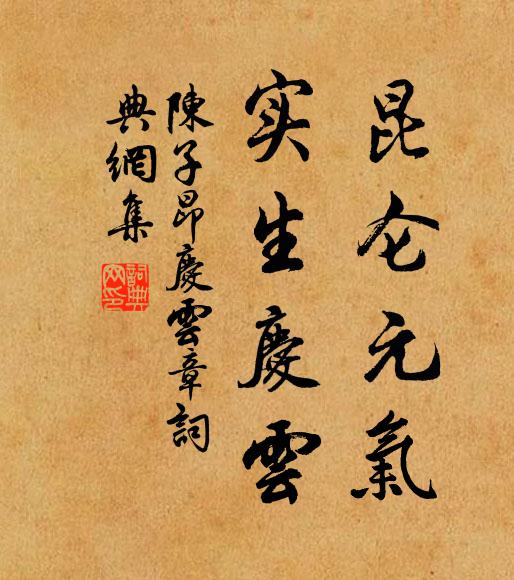 昆仑元氣
实生慶雲
陳子昂慶雲章詞
典網集
詞典網印